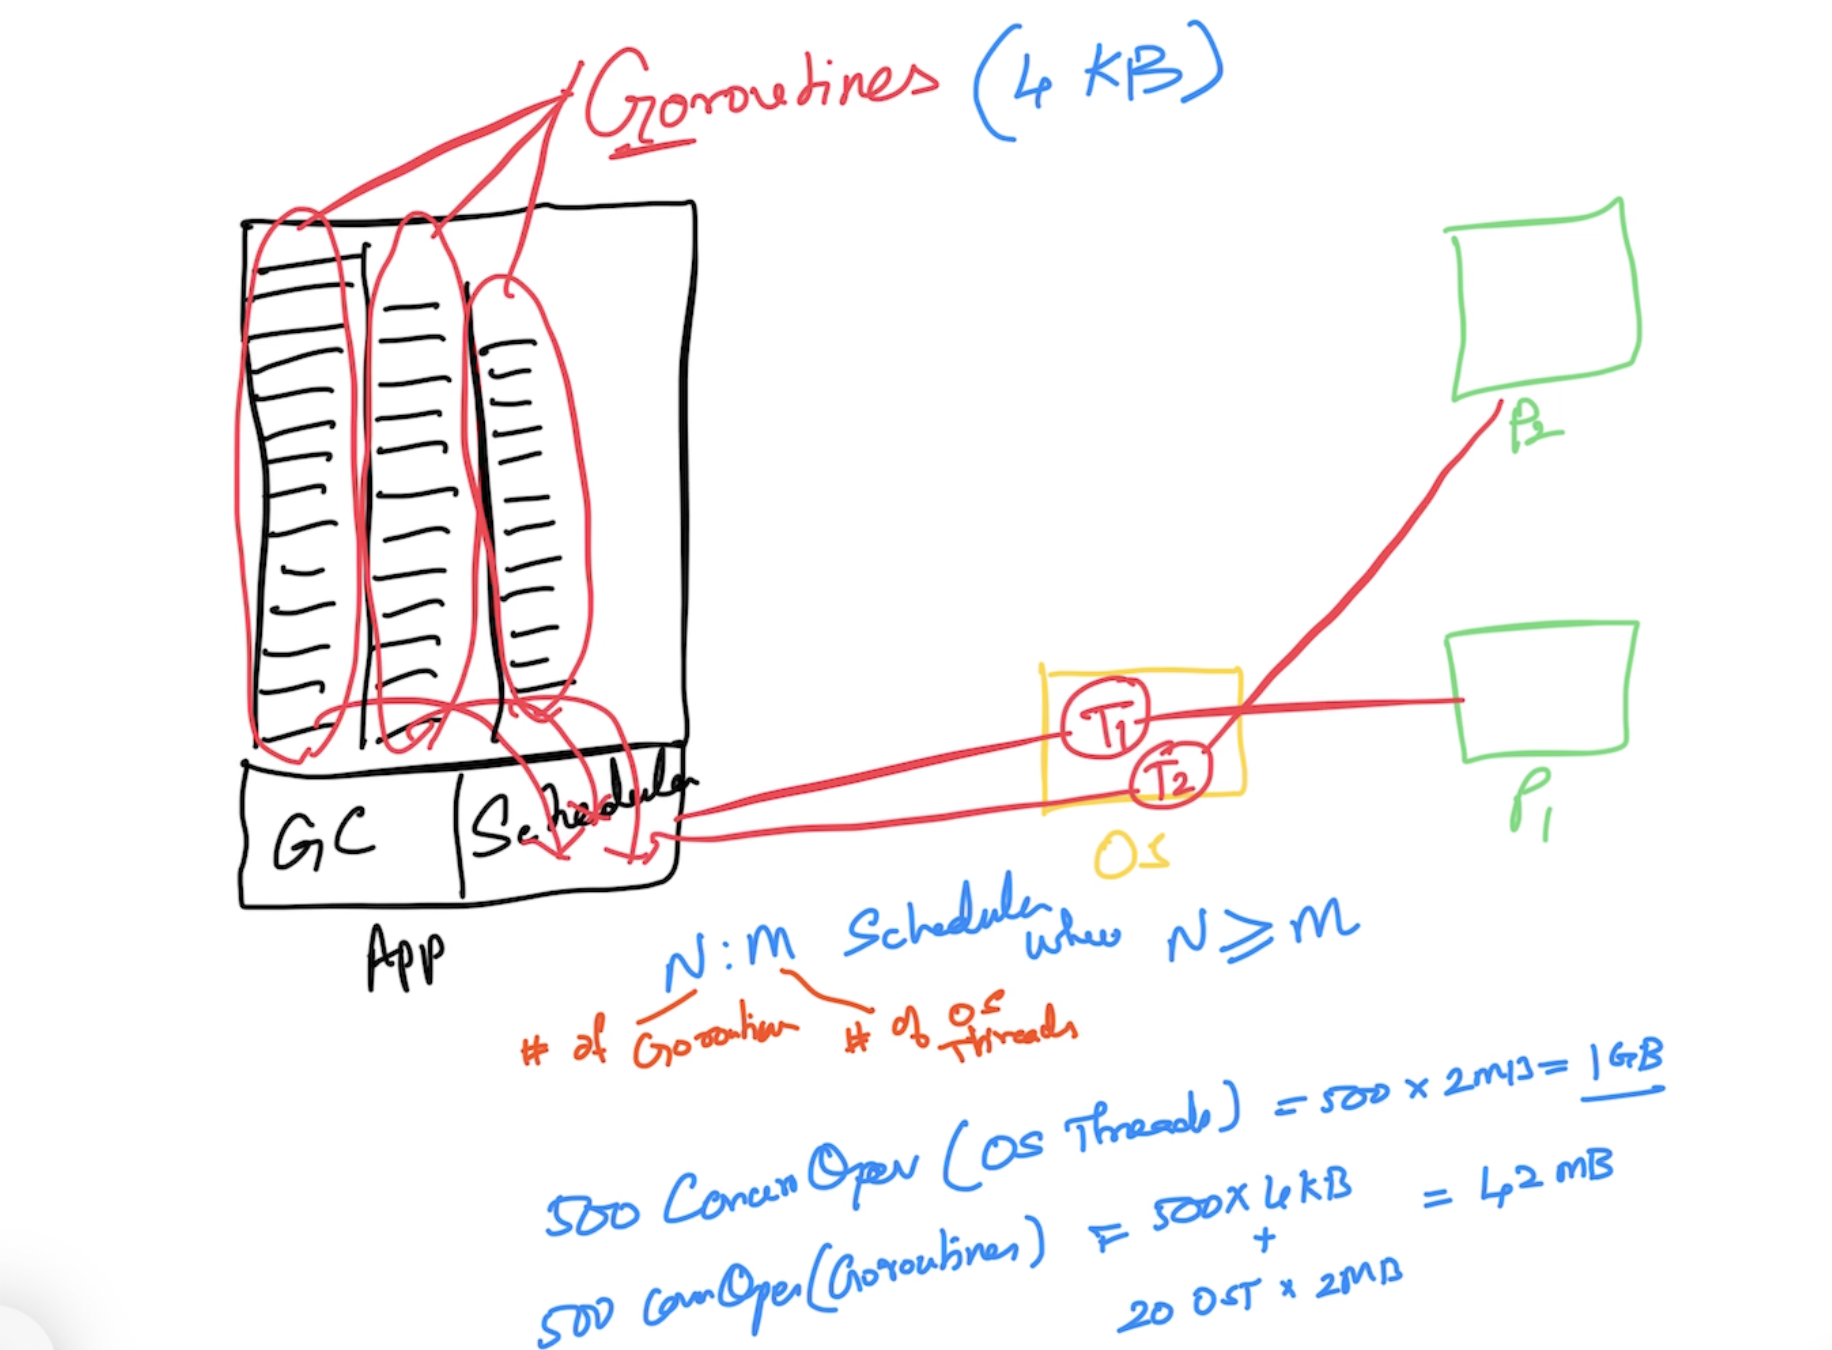 Goroutines (4 KB)
P2
T1
T2
P1
GC
Scheduler
OS
App
N:M Scheduler when N ⩾ M
# of Goroutines
# of OS Threads
500 Concurr Oper (OS Threads) = 500 x 2MB = 1GB
500 Conn Oper (Goroutines) = 500 x 4KB = 42 MB
+
20 OST x 2MB